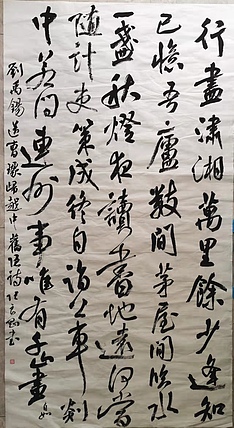 行盡瀟湘萬里餘少逢知
己憶吾廬數間茅屋間臨水
一盞秋燈夜讀書地遠何當
隨計吏策成終自詣公車剡
中若問連州事唯有千山畫不如
劉禹錫送曹璩歸越中舊隱詩書